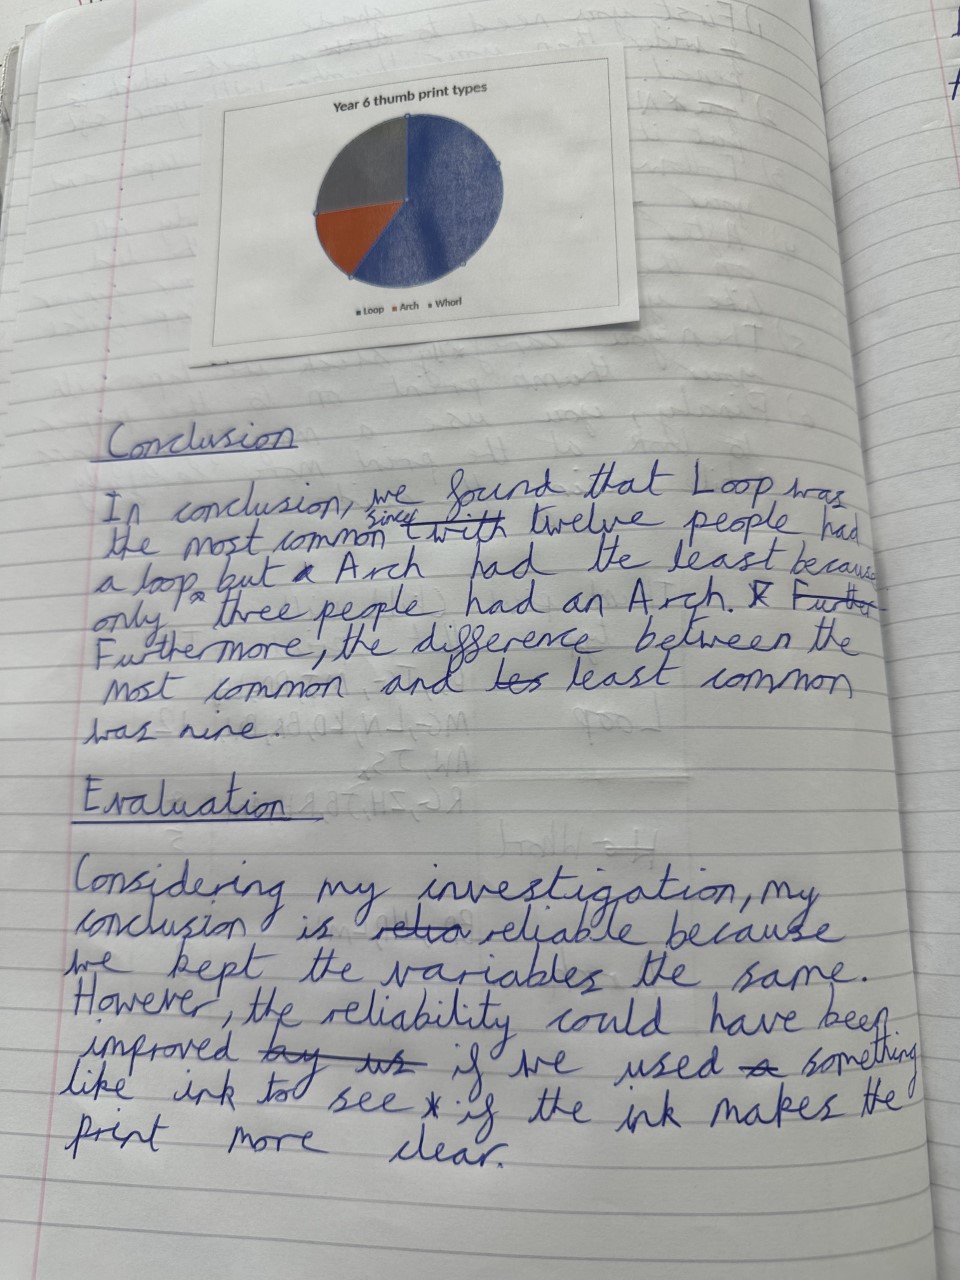 Year 6 thumb print types
Loop Arch Whorl
Conclusion
In conclusion, we found that Loop was
the most common since with twelve people had
a loop but Arch had the least because
only three people had an Arch. Further
Furthermore, the difference between the
most common and les least common
was nine.
Evaluation
Considering my investigation, my
conclusion is relia reliable because
we kept the variables the same.
However, the reliability could have been
improved by us if we used a something
like ink to see if the ink makes the
print more clear.